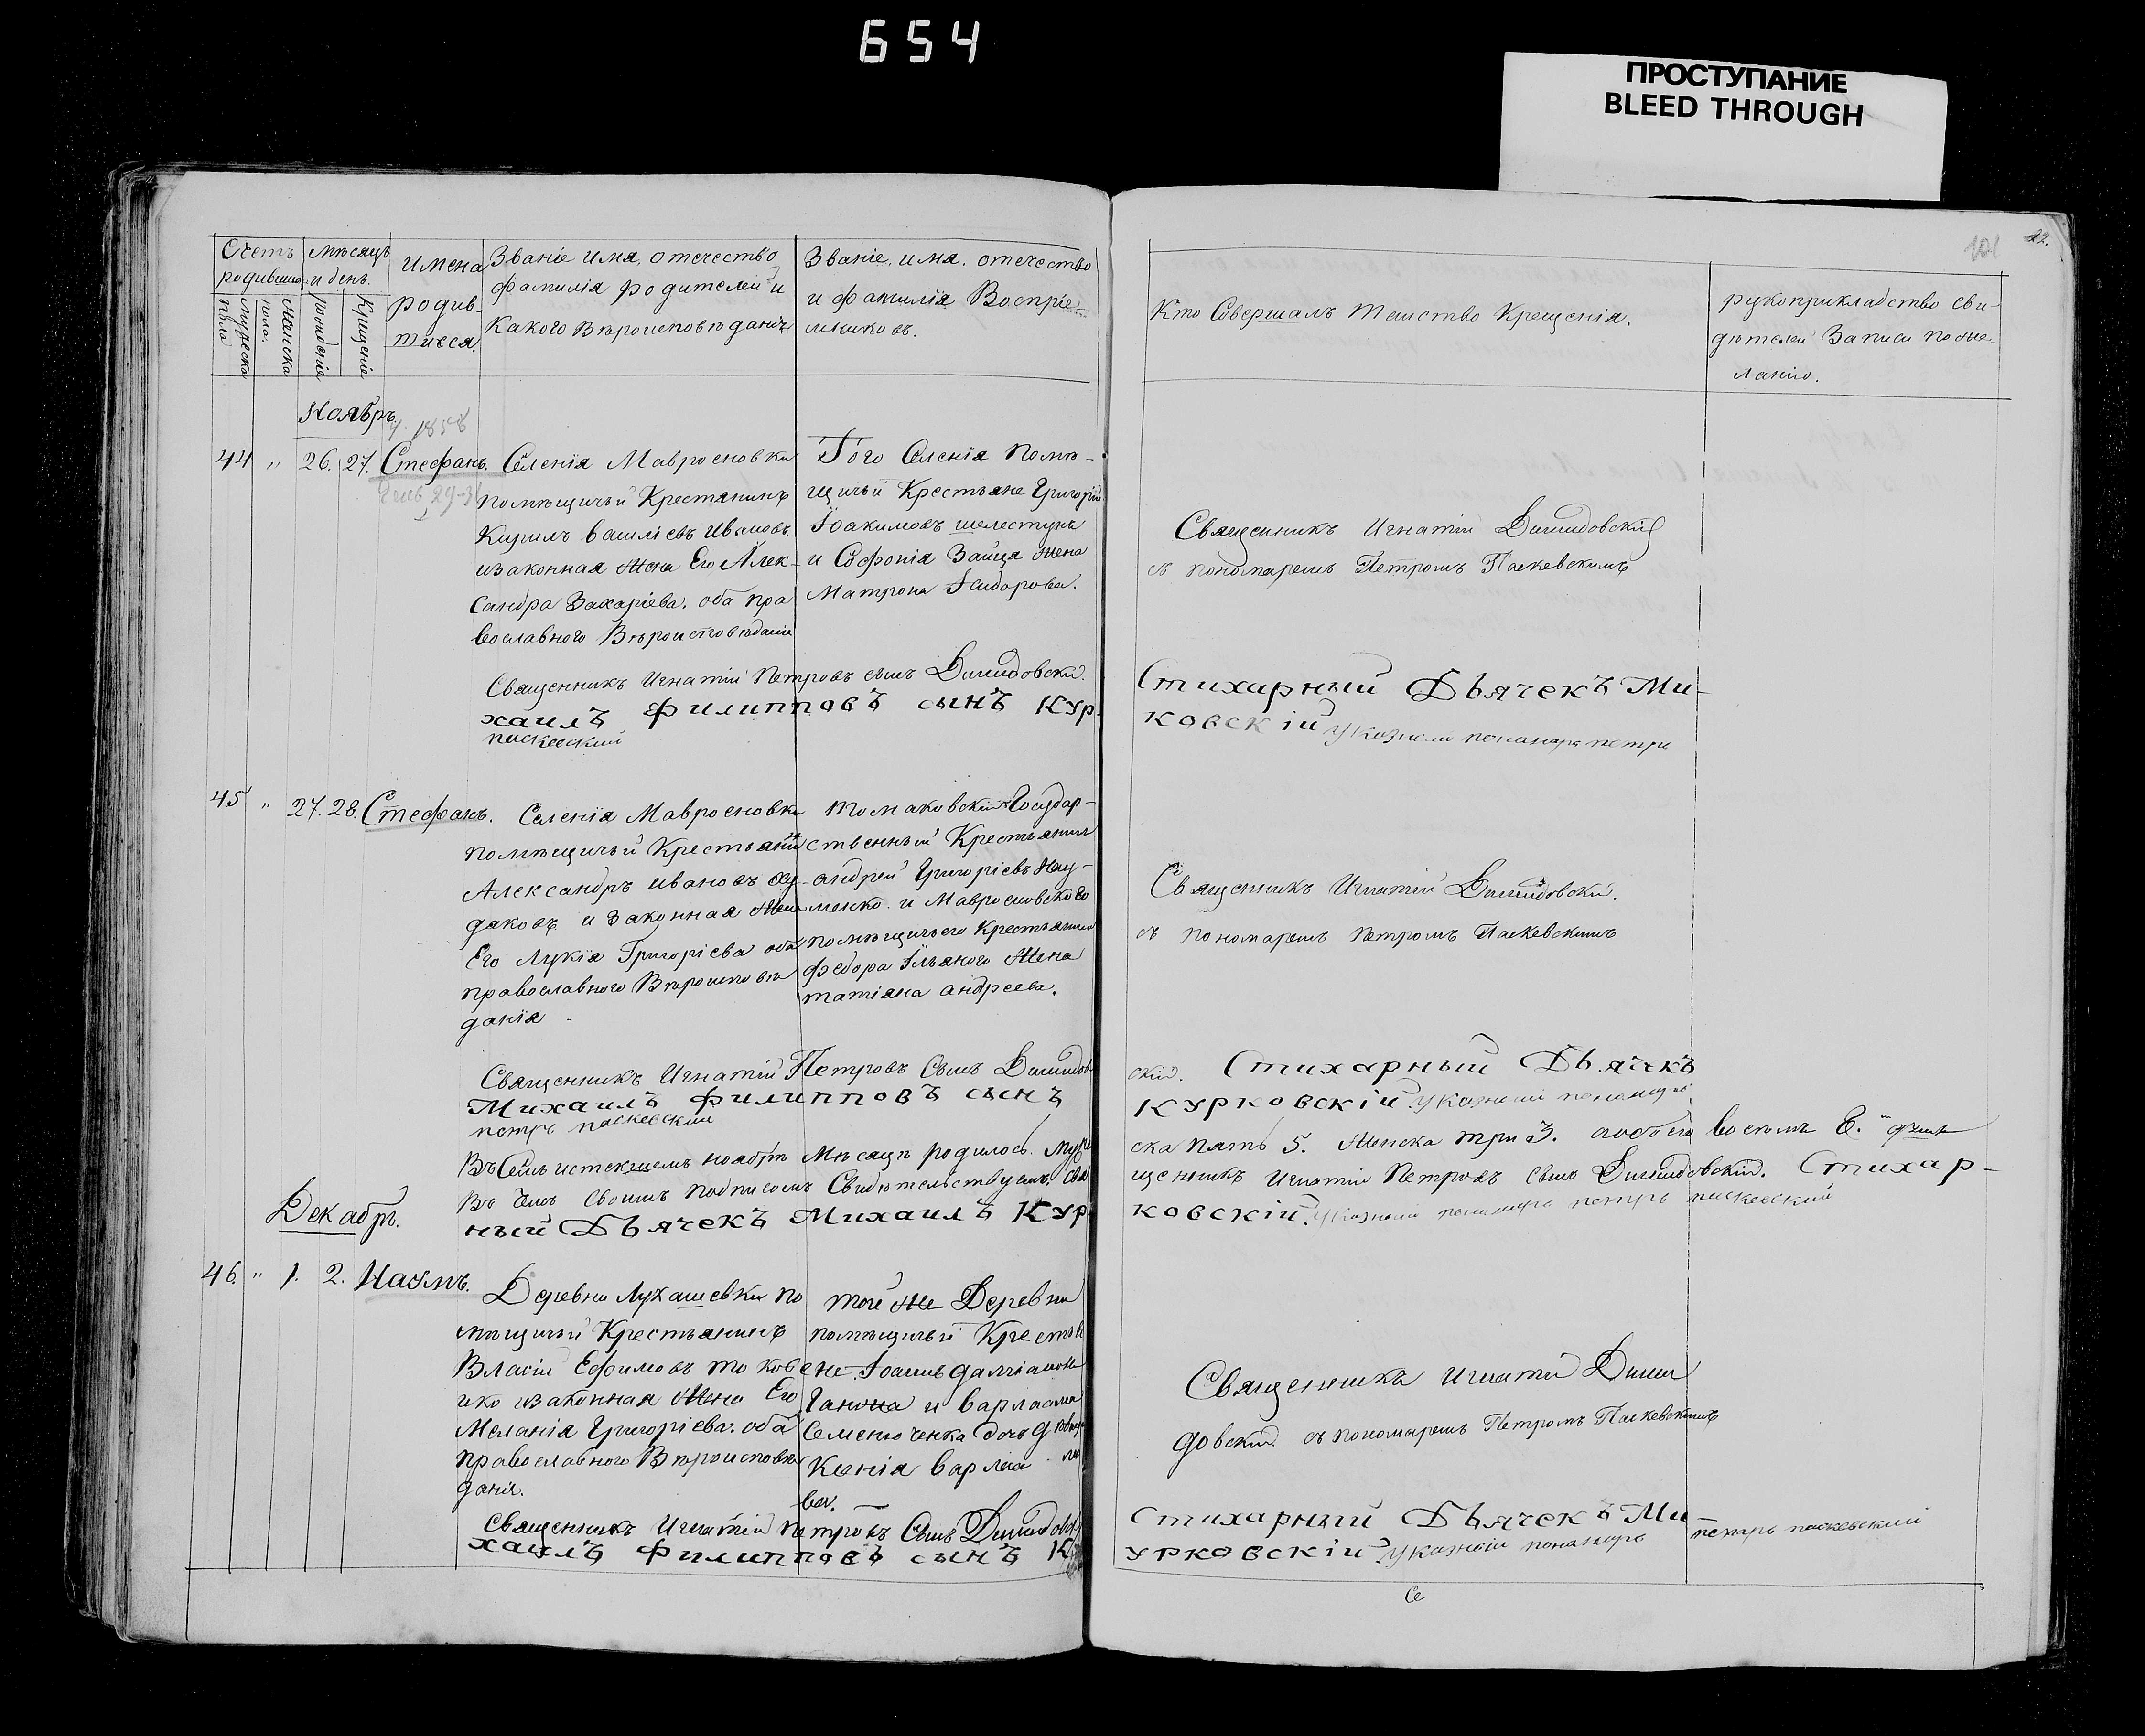 654
ПРОСТУПАНИЕ
BLEED THROUGH
101
22.
Счетъ
родивших
Мужеска
пола
Женска
пола.
Мѣсяцъ
и день.
рожденіе
Крещеніе
Имена
родив-
шиеся.
Званіе имя, отечество
фамилія родителей и
какого Вѣроисповѣданія
Званіе, имя, отечество
и фамилія Воспріе-
мниковъ.
Кто Совершалъ Таинство Крещенія.
рукоприкладство сви-
дѣтелей Записи по же-
ланію.
Ноябрь
1858
44 " 26. 27. Стефанъ.
Селенія Мавросновки
помѣщичьи Крестянинъ
Кирилъ Василіевъ Ивановъ.
изаконная Жена Его Алек-
сандра Захаріева. оба пра
вославного Вѣроисповѣданія
Того Селенія помѣ-
щичьи Крестьяне Григорій
Іоакимовъ шелестунъ
и Софонія Зайця жена
Матрона Ісидорова.
Священникъ Игнатій Дишидовскій
съ пономаремъ Петромъ Паскевскимъ
Священникъ Игнатій Петровъ сынъ Дишидовскій.
Стихарный Дьячекъ Ми-
хаилъ Филипповъ сынъ Кур-
ковскій указный понамарь петръ
паскевский
45 " 27. 28. Стефанъ.
Селенія Мавросновки
помѣщичьи Крестьянинъ
Александръ Ивановъ Ху-
дяковъ и Законная Жена
Его Лукія Григоріева оба
православного Вѣроисповѣ
данія
Томаковскій Государ-
ственный Крестьянинъ
Андрей Григоріевъ Нау-
менко. и Мавросновского
помѣщичьего Крестьянина
Федора Ільяного Жена
татіяна андреева.
Священникъ Игнатій Дишидовскій.
съ пономаремъ Петромъ Паскевскимъ
Священникъ Игнатій Петровъ Сынъ Дишидов
скій. Стихарный Дьячекъ
Михаилъ Филипповъ сынъ
Курковскій указный понамарь
петръ паскевский
Въ Семъ истекшемъ ноябрѣ Мѣсяцѣ родилось. Муже
ска пять 5. Женска три 3. обоего восемь 8. душъ
Въ чемъ своимъ подписомъ Свидѣтельствуемъ. Свя
щенникъ Игнатій Петровъ сынъ Дишидовскій. Стихар-
ный Дьячекъ Михаилъ Кур
ковскій. указный понамарь петръ паскевский
Декабрь.
46. " 1. 2. Наумъ.
Деревни Лукашевки по
мѣщичьи Крестьянинъ
Власій Ефимовъ
изаконная Жена Его
Меланія Григоріева. оба
православного Вѣроисповѣ
данія.
той же Деревни
помѣщичьи Крестья
не Іоаннъ
и варлаама
Семенюченка дочь
Ксенія варлаа
ва.
Священникъ Игнатій Диши
довскій. съ пономаремъ Петромъ Паскевскимъ
Священникъ Игнатій Петровъ Сынъ Дишидовскій
Стихарный Дьячекъ Ми-
хаилъ Филипповъ сынъ К
урковскій. указный понамарь петръ паскевский
Се